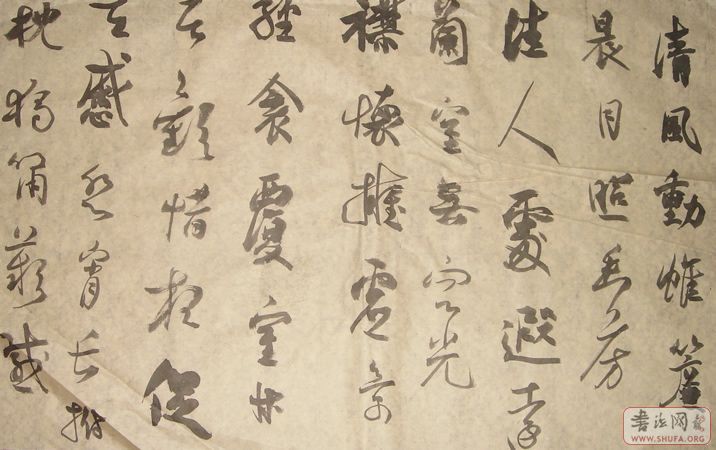 清風動帷簾
晨月照幽房
佳人處遐遠
蘭室無容光
襟懷擁虛景
輕衾覆空床
居歡惜夜促
在感怨宵長拊
枕獨嘯歎感
書法网
WWW.SHUFA.ORG